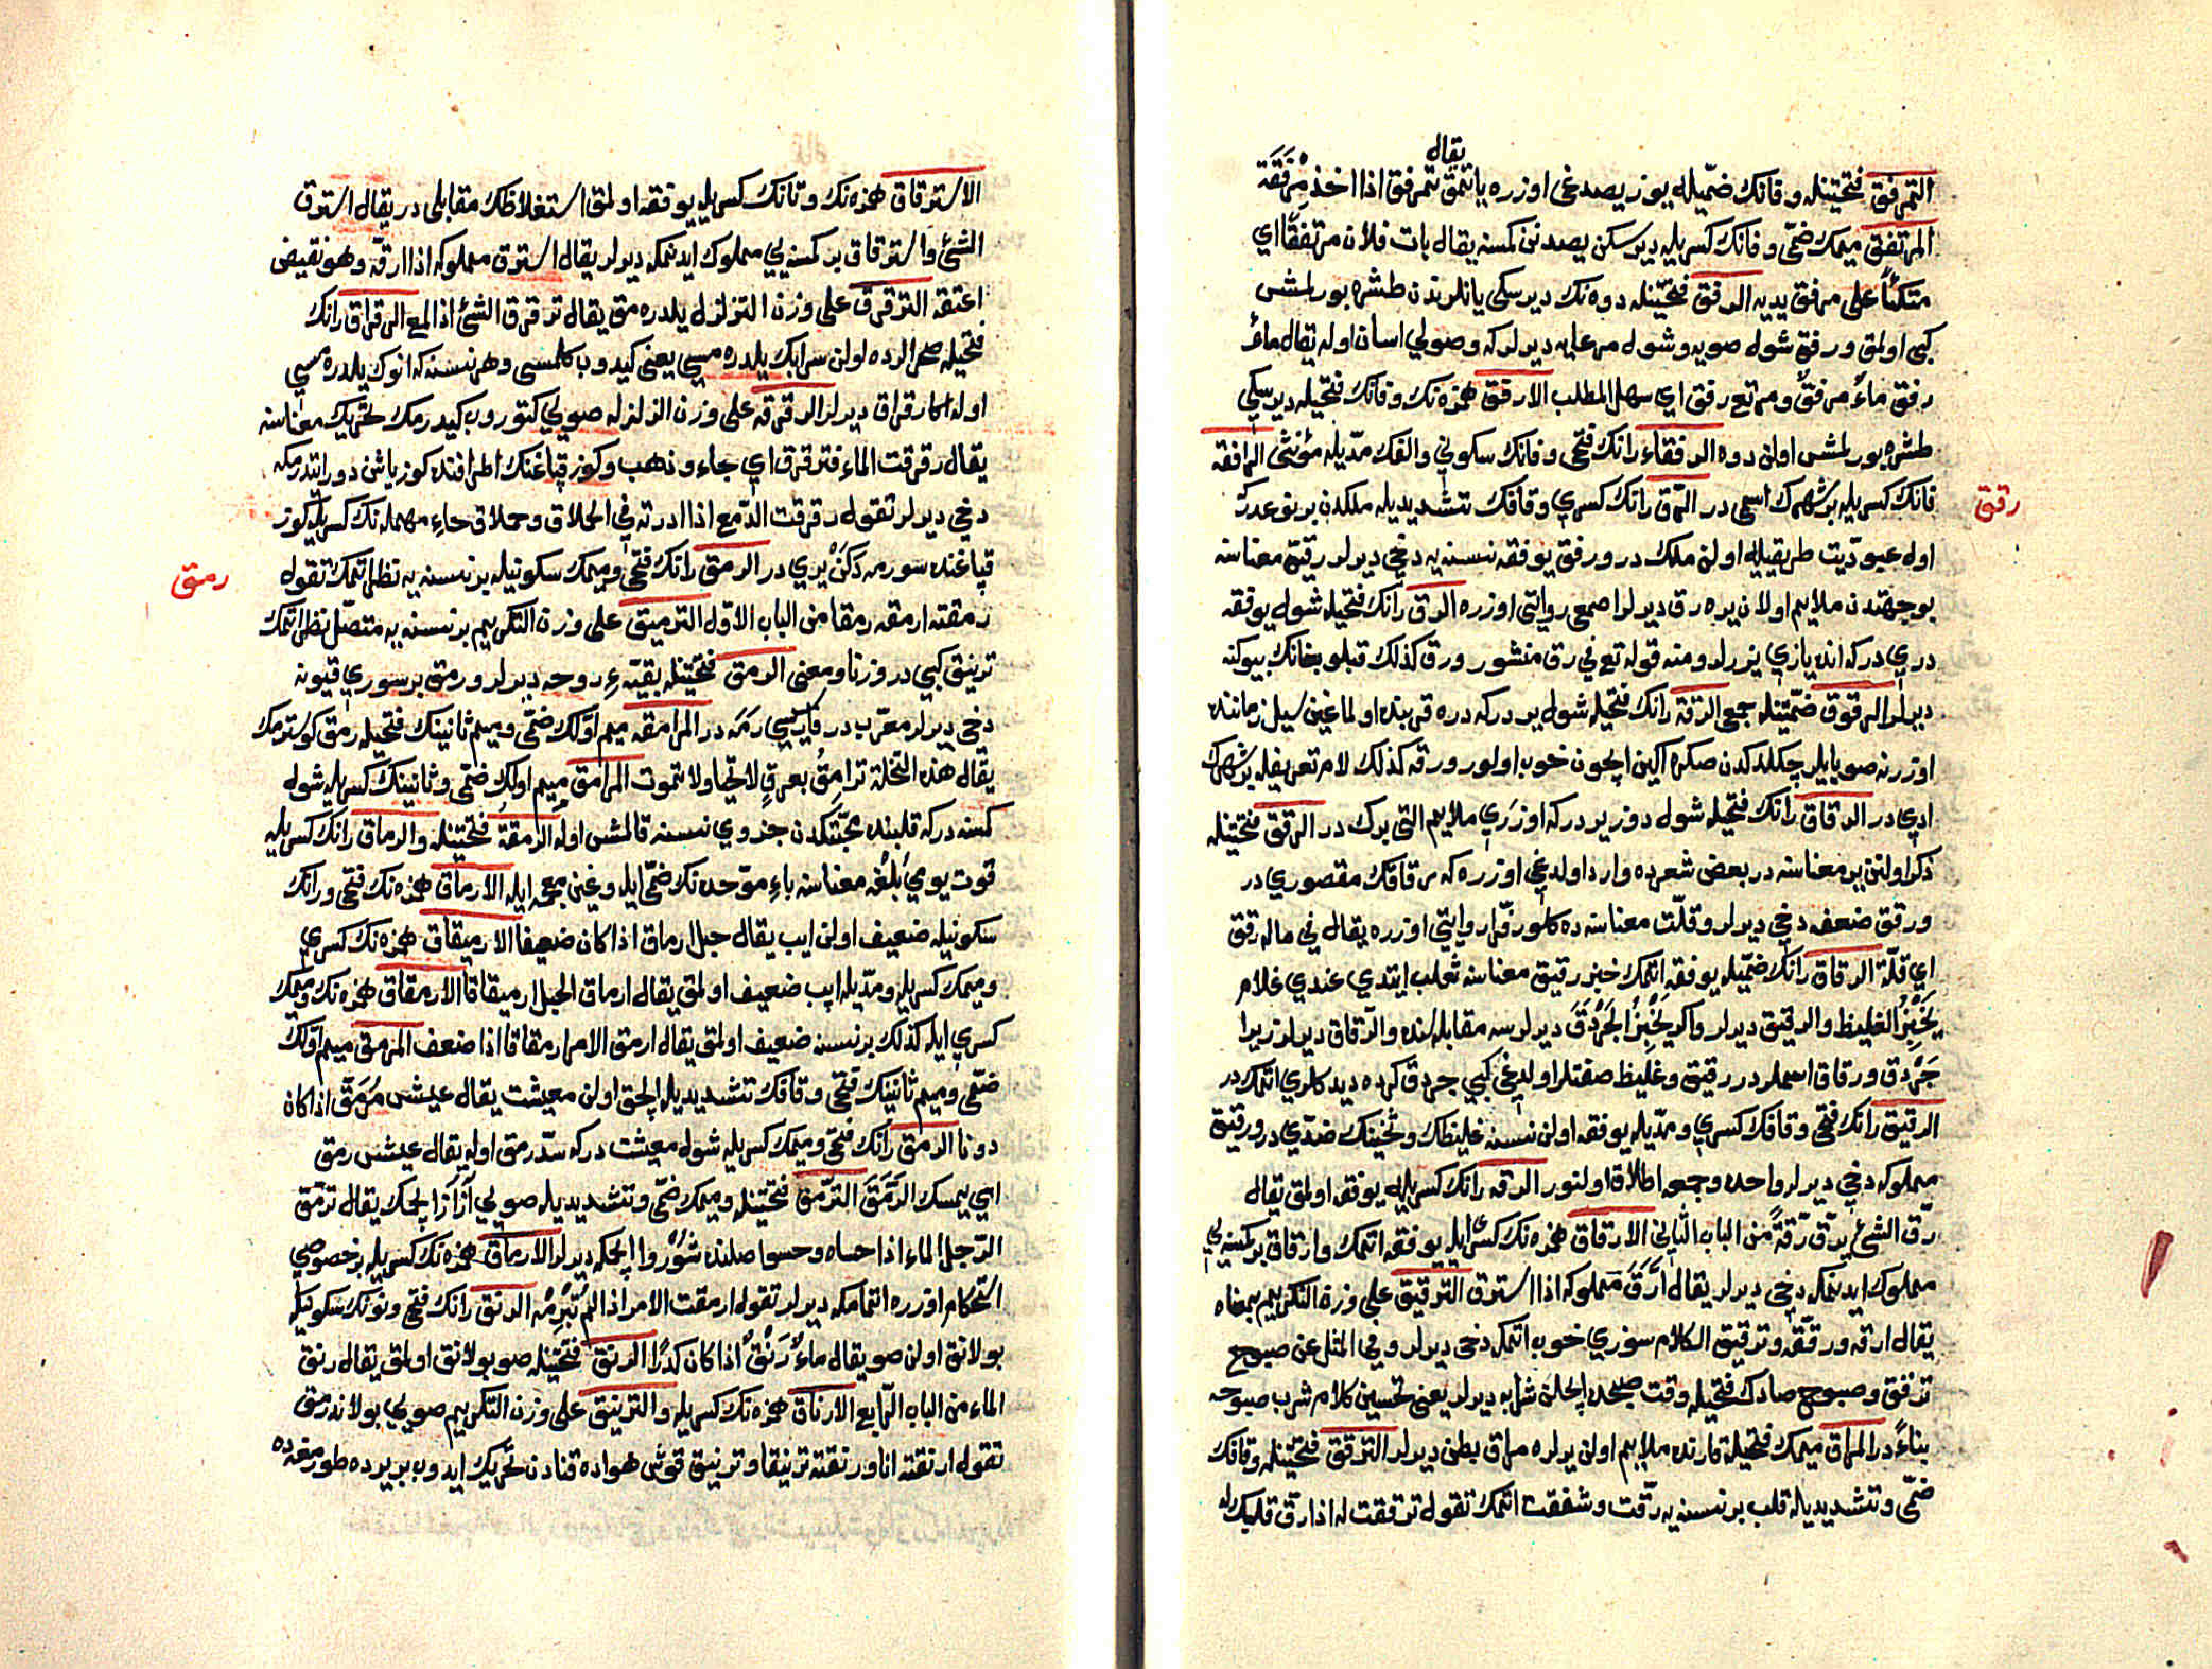 يقال
التمرفق فتحتينله وقانك ضميله يوز يصدغى اوزره ياتمق تمرفق اذا اخذ مرفقة
المرتفق ميمك ضمى وفانك كسريله ديرسكن يصدنن كمسنه يقال بات فلان مرتفقا اي
متكئا على مرفق يديه الرفق فتحتينله دوه نك ديرسكى يانلرندن طشره بورلمش
كبى اولمق ورفق شول صويه وشول مرعايه ديرلركه وصولي اسان اوله يقال ماء
رفق ماء مرفق ومرتع رفق اي سهل المطلب الارفق همزه نك وفانك فتحيله ديرسكى
طشره بورلمش اولن دوه الرفقاء رانك فتحى وفانك سكوني والفك مديله مؤنثى الرافقه
فانك كسريله بر شهرك اسمى در الرق رانك كسري وقافك تشديديله ملكدن بر نوعدر كه
رقق
اول عبوديت طريقيله اولن ملك در ورقق يوفقه نسنه يه دخي ديرلر رقيق معناسنه
بوجهتدن ملايم اولان يره رق ديرلر اصمعى روايتى اوزره الرق رانك فتحيله شول يوفقه
دري در كه انده يازي يزرلر ومنه قوله تع في رق منشور ورق كذلك قبلو بغانك بيوكنه
ديرلر الرقوق ضمتينله جمعى الرقة رانك فتحيله شول ير در كه دره قربنده اولماغين سيل زماننده
اوزرنه صو يايلر چكلدكدن صكره اكين ايچون خوب اولور ورقه كذلك لام تعريفله بر شهرك
ادي در الرقاق رانك فتحيله شول دوز ير در كه اوزري ملايم التى برك در الرقق فتحتينله
ذكر اولنن ير معناسنه در بعض شعرده وارد اولدغي اوزره كه رقاقك مقصوري در
ورقق ضعفه دخي ديرلر وقلت معناسنه ده كلور فرا روايتي اوزره يقال في ماله رقق
اي قلة الرقاق رانك ضميله يوفقه اتمك خبز رقيق معناسنه ثعلب ايتدي عندي غلام
يخبز الغليظ والرقيق ديرلر واكر يخبز الجردق ديرلرسه مقابله سنده والرقاق ديرلر زيرا
جردق ورقاق اسملر در رقيق وغليظ صفتلر اولدغي كبي جردق كرده ديدكلري اتمك در
الرقيق رانك فتحى وقافك كسري ومديله يوفقه اولن نسنه غليظك وثخينك ضدي در ورقيق
مملوكه دخي ديرلر واحده وجمعه اطلاق اولنور الرقه رانك كسريله يوفقه اولمق يقال
رق الشئ يرق رقة من الباب الثاني الارقاق همزه نك كسريله يوفقه اتمك وارقاق بر كمسنه يي
مملوك ايدنمكه دخي ديرلر يقال ارق مملوكه اذا استرق الترقيق على وزن التكريم بمعناه
يقال ارقه ورققه وترقيق الكلام سوزي خوب اتمكه دخي ديرلر وفي المثل عن صبوح
ترقق وصبوح صادك فتحيله وقت صبحده ايچلن شرابه ديرلر يعني تحسين كلام شرب صبوحه
بناء در المراق ميمك فتحيله قارنده ملايم اولن يرلره مراق بطن ديرلر الترقق فتحتينله وقافك
ضمى وتشديديله قلب بر نسنه يه رقت وشفقت اتمك تقول ترققت له اذا رق قلبك له
الاسترقاق همزه نك وتانك كسريله يوفقه اولمق استغلاظك مقابلى در يقال استرق
الشئ واسترقاق بر كمسنه يي مملوك ايدنمكه ديرلر يقال استرق مملوكه اذا ارقه وهو نقيض
اعتقه الترقرق على وزن التزلزل يلدره مق يقال ترقرق الشئ اذا لمع الرقراق رانك
فتحيله صحرالرده اولن سرابك يلدره مسي يعني كيدوب كلمسى وهر نسنه كه انوك يلدره مسي
اوله اكا رقراق ديرلر الرقرقه على وزن الزلزله صويي كتوروب كيدرمك تحريك معناسنه
يقال رقرقت الماء فترقرق اي جاء وذهب وكوز قپاغنك اطرافنده كوز ياشن دور ايتدرمكه
دخي ديرلر تقول رقرقت الدمع اذا ادرته في الحلاق وحملاق حاء مهمله نك كسريله كوز
قپاغنده سورمه دكن يري در الرمق رانك فتحى وميمك سكونيله بر نسنه يه نظر اتمك تقول
رمق
رمقته ارمقه رمقا من الباب الاول الترميق على وزن التكريم بر نسنه يه متصل نظر اتمك
ترنيق كبي در وزنا ومعنى الرمق فتحتينله بقيه ء روحه ديرلر ورمق بر سوري قيونه
دخي ديرلر معرب در فارسي رمه در المرامقه ميم اولك ضمى وميم ثانينك فتحيله رمق كوسترمك
يقال هذه النخلة ترامق بعرق لا تحيا ولا تموت المرامق ميم اولك ضمى وثانينك كسريله شول
كمسنه در كه قلبنده محبتكدن جزوي نسنه قالمش اوله الرمقة فتحتينله والرماق رانك كسريله
قوت يومي بلغه معناسنه باء موحده نك ضمى ايله وغين معجمه ايله الارماق همزه نك فتحى ورانك
سكونيله ضعيف اولن ايپ يقال حبل ارماق اذا كان ضعيفا الارميقاق همزه نك كسري
وميمك كسريله ومديله ايپ ضعيف اولمق يقال ارماق الحبل ارميقاقا الارمقاق همزه نك وميمك
كسري ايله كذلك بر نسنه ضعيف اولمق يقال ارمق الامر ارمقاقا اذا ضعف المرمق ميم اولك
ضمى وميم ثانينك فتحى وقافك تشديديله الچق اولن معيشت يقال عيش مرمق اذا كان
دونا الرمق رانك فتحى وميمك كسريله شول معيشت در كه سد رمق اوله يقال عيش رمق
اي يمسك الرمق الترمق فتحتينله وميمك ضمى وتشديديله صويي از از ايچمك يقال ترمق
الرجل الماء اذا حساه وحسوا صلنده شوروا ايچمكه ديرلر الارماق همزه نك كسريله بر خصوصي
استحكام اوزره اتمامكه ديرلر تقول ارمقت الامر اذا لم تبرمه الرنق رانك فتحى ونونك سكونيله
بولانق اولن صو يقال ماء رنق اذا كان كدرا الرنق فتحتينله صو بولانق اولمق يقال رنق
الماء من الباب الرابع الارناق همزه نك كسريله والترنيق على وزن التكريم صويي بولاندرمق
تقول ارنقته انا ورنقته ترنيقا وترنيق قوش هواده قنادن تحريك ايدوب بر يرده طورمغه ده